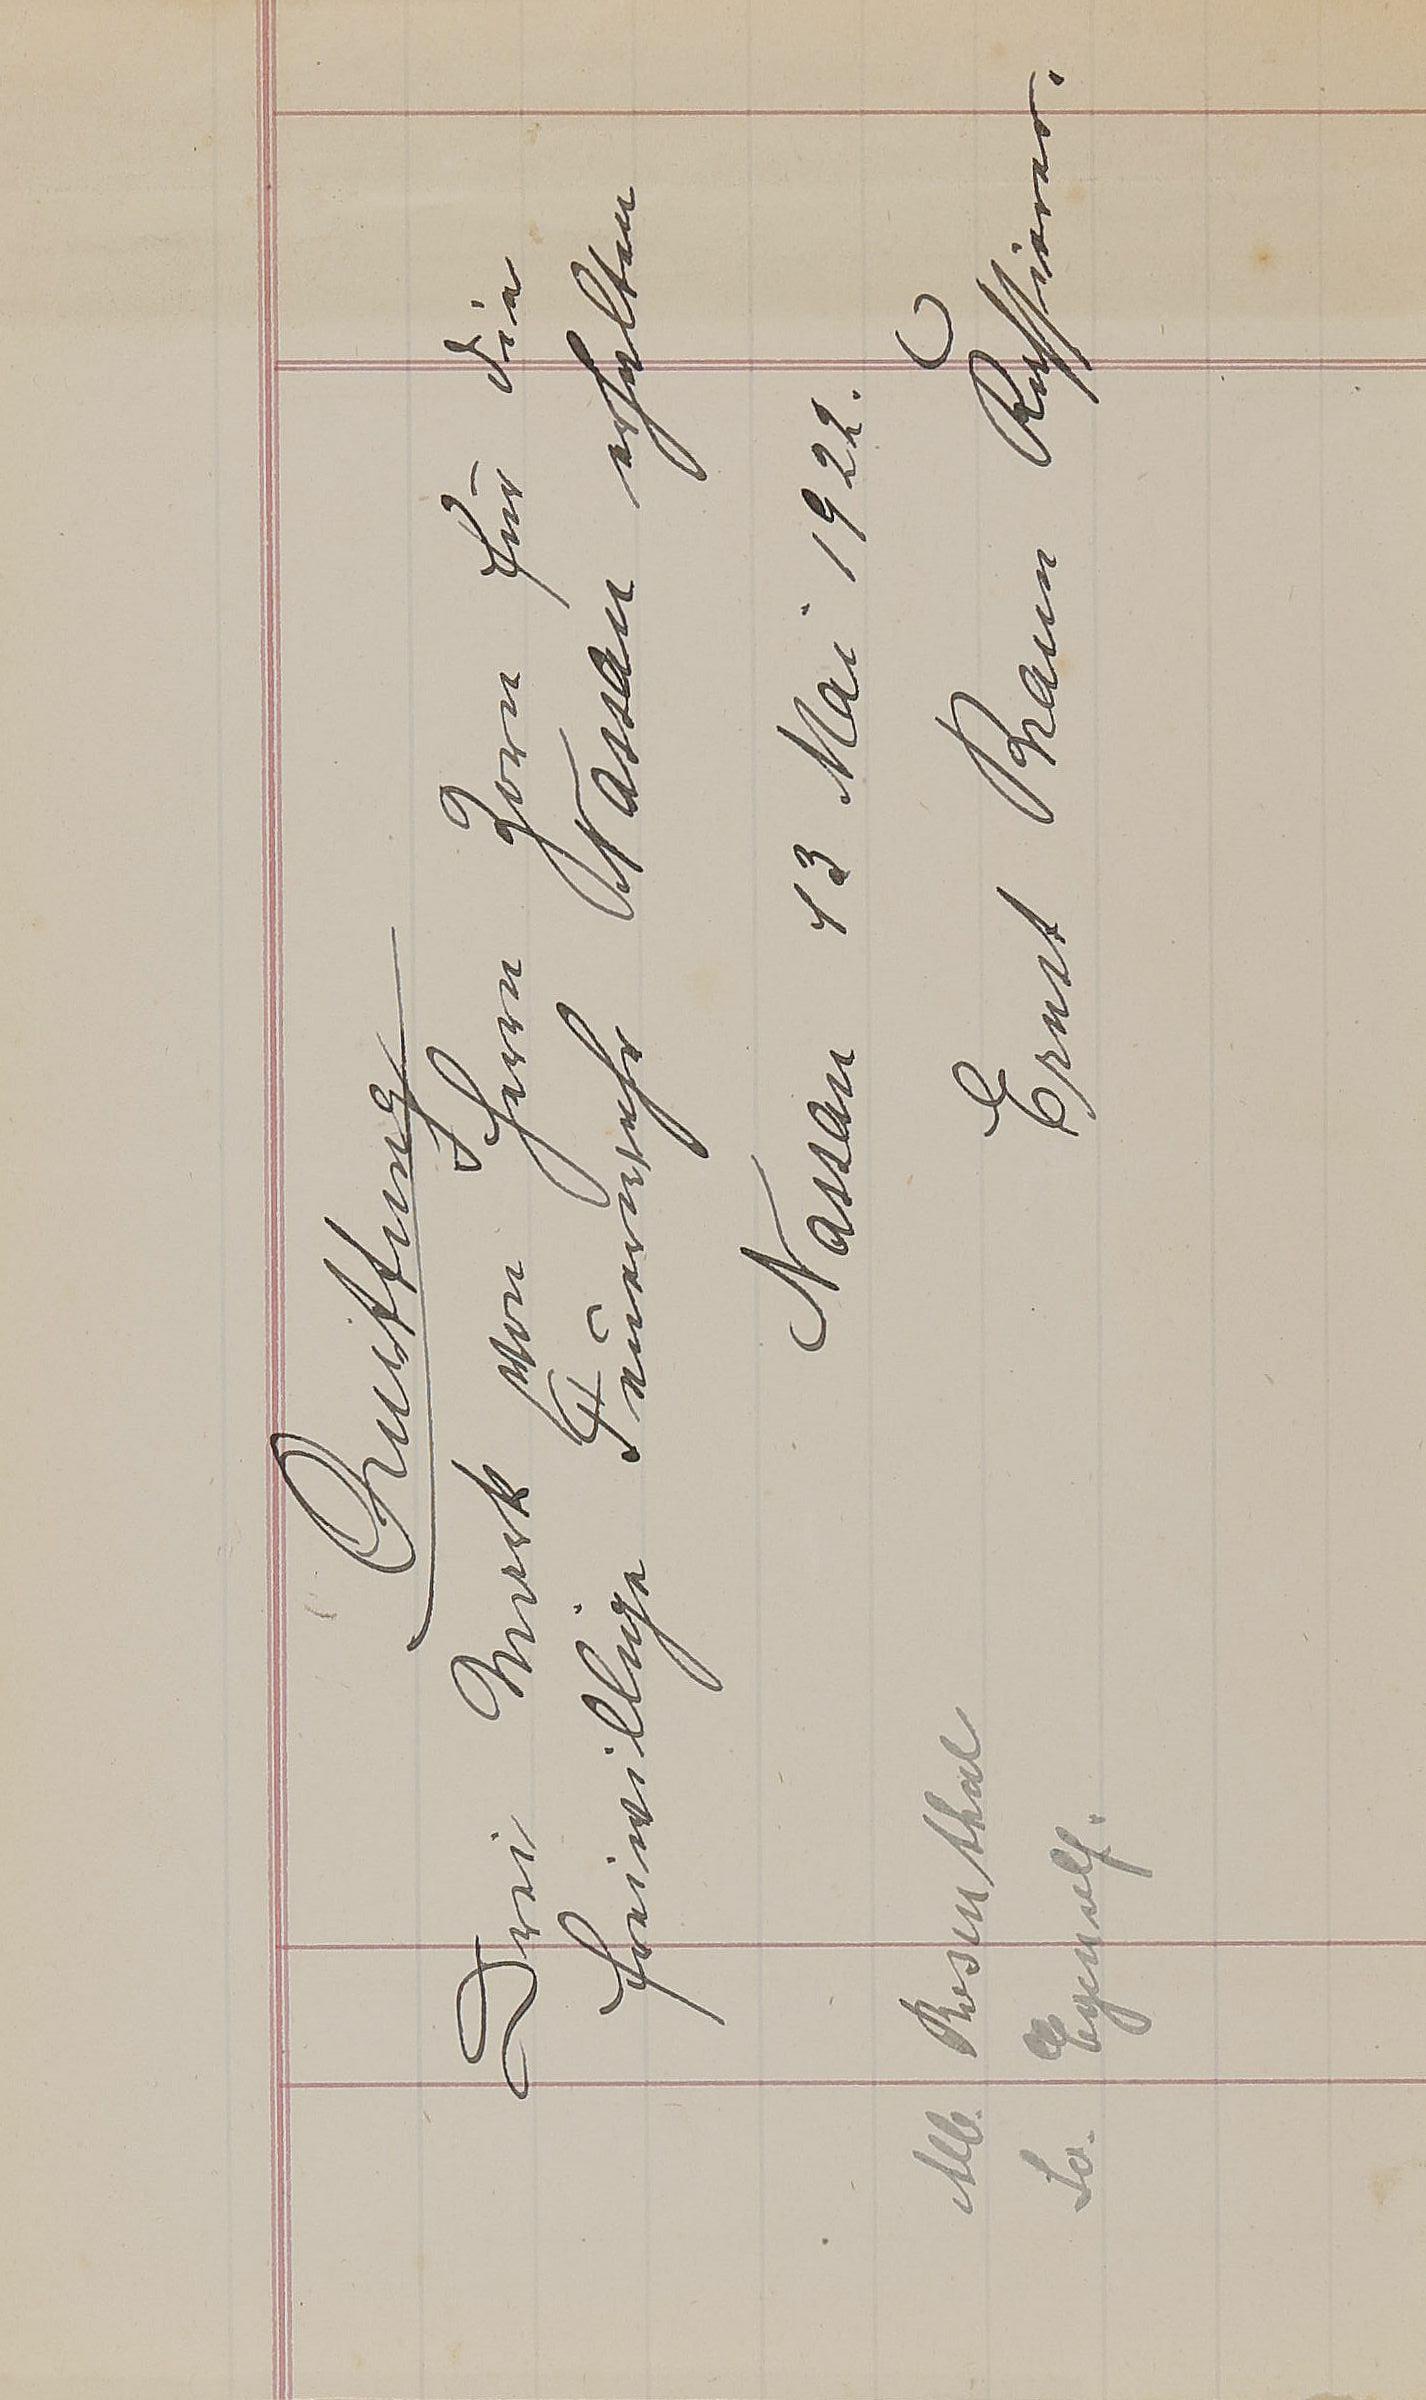 Quittung
Drei Mark von Herrn Zorn für die
freiwillige Feuerwehr Nassau erhalten
Nassau 13 Mai 1922.
Ernst Braun Kassierer.
Alb. Rosenthal